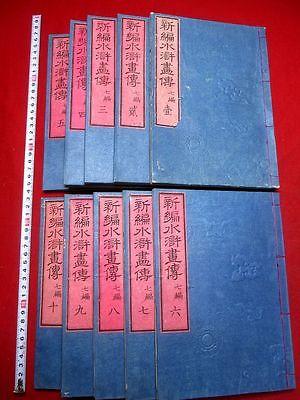 新編水滸畫傳 七編 壹
新編水滸畫傳 七編 貳
新編水滸畫傳 七編 三
新編水滸畫傳 七編 四
新編水滸畫傳 七編 五
新編水滸畫傳 七編 六
新編水滸畫傳 七編 七
新編水滸畫傳 七編 八
新編水滸畫傳 七編 九
新編水滸畫傳 七編 十